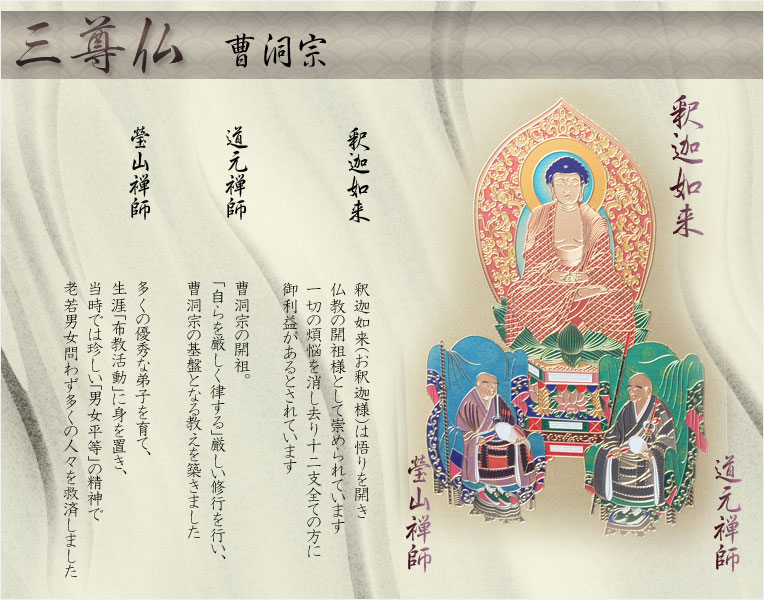 三尊仏 曹洞宗
釈迦如来
釈迦如来
釈迦如来（お釈迦様）は悟りを開き
仏教の開祖様として崇められています
一切の煩悩を消し去り十二支全ての方に
御利益があるとされています
道元禅師
曹洞宗の開祖。
「自らを厳しく律する」厳しい修行を行い、
曹洞宗の基盤となる教えを築きました
瑩山禅師
多くの優秀な弟子を育て、
生涯「布教活動」に身を置き、
当時では珍しい「男女平等」の精神で
老若男女問わず多くの人々を救済しました
道元禅師
瑩山禅師